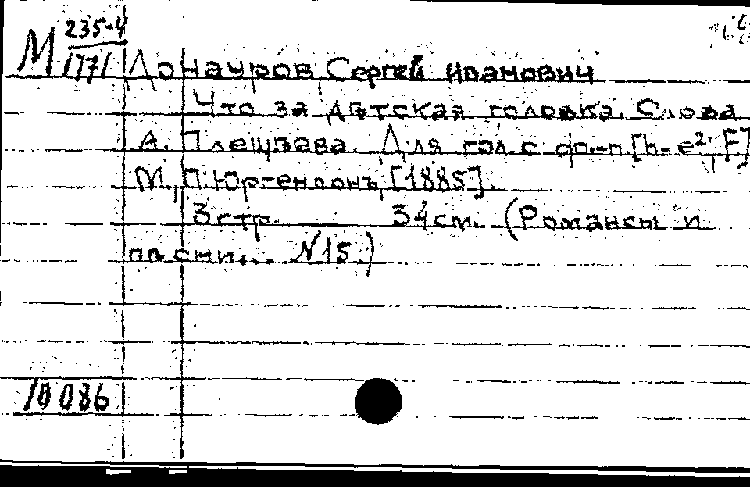 М 235-4
1771
Донауров Сергей Иванович
Что за детская головка. Слова
А. Плещеева. Для гол. с ф-п [h-e², F]
М., П. Юргенсонъ, [1885].
3 стр. 34 см. (Романсы и
песни... №15.)
10086